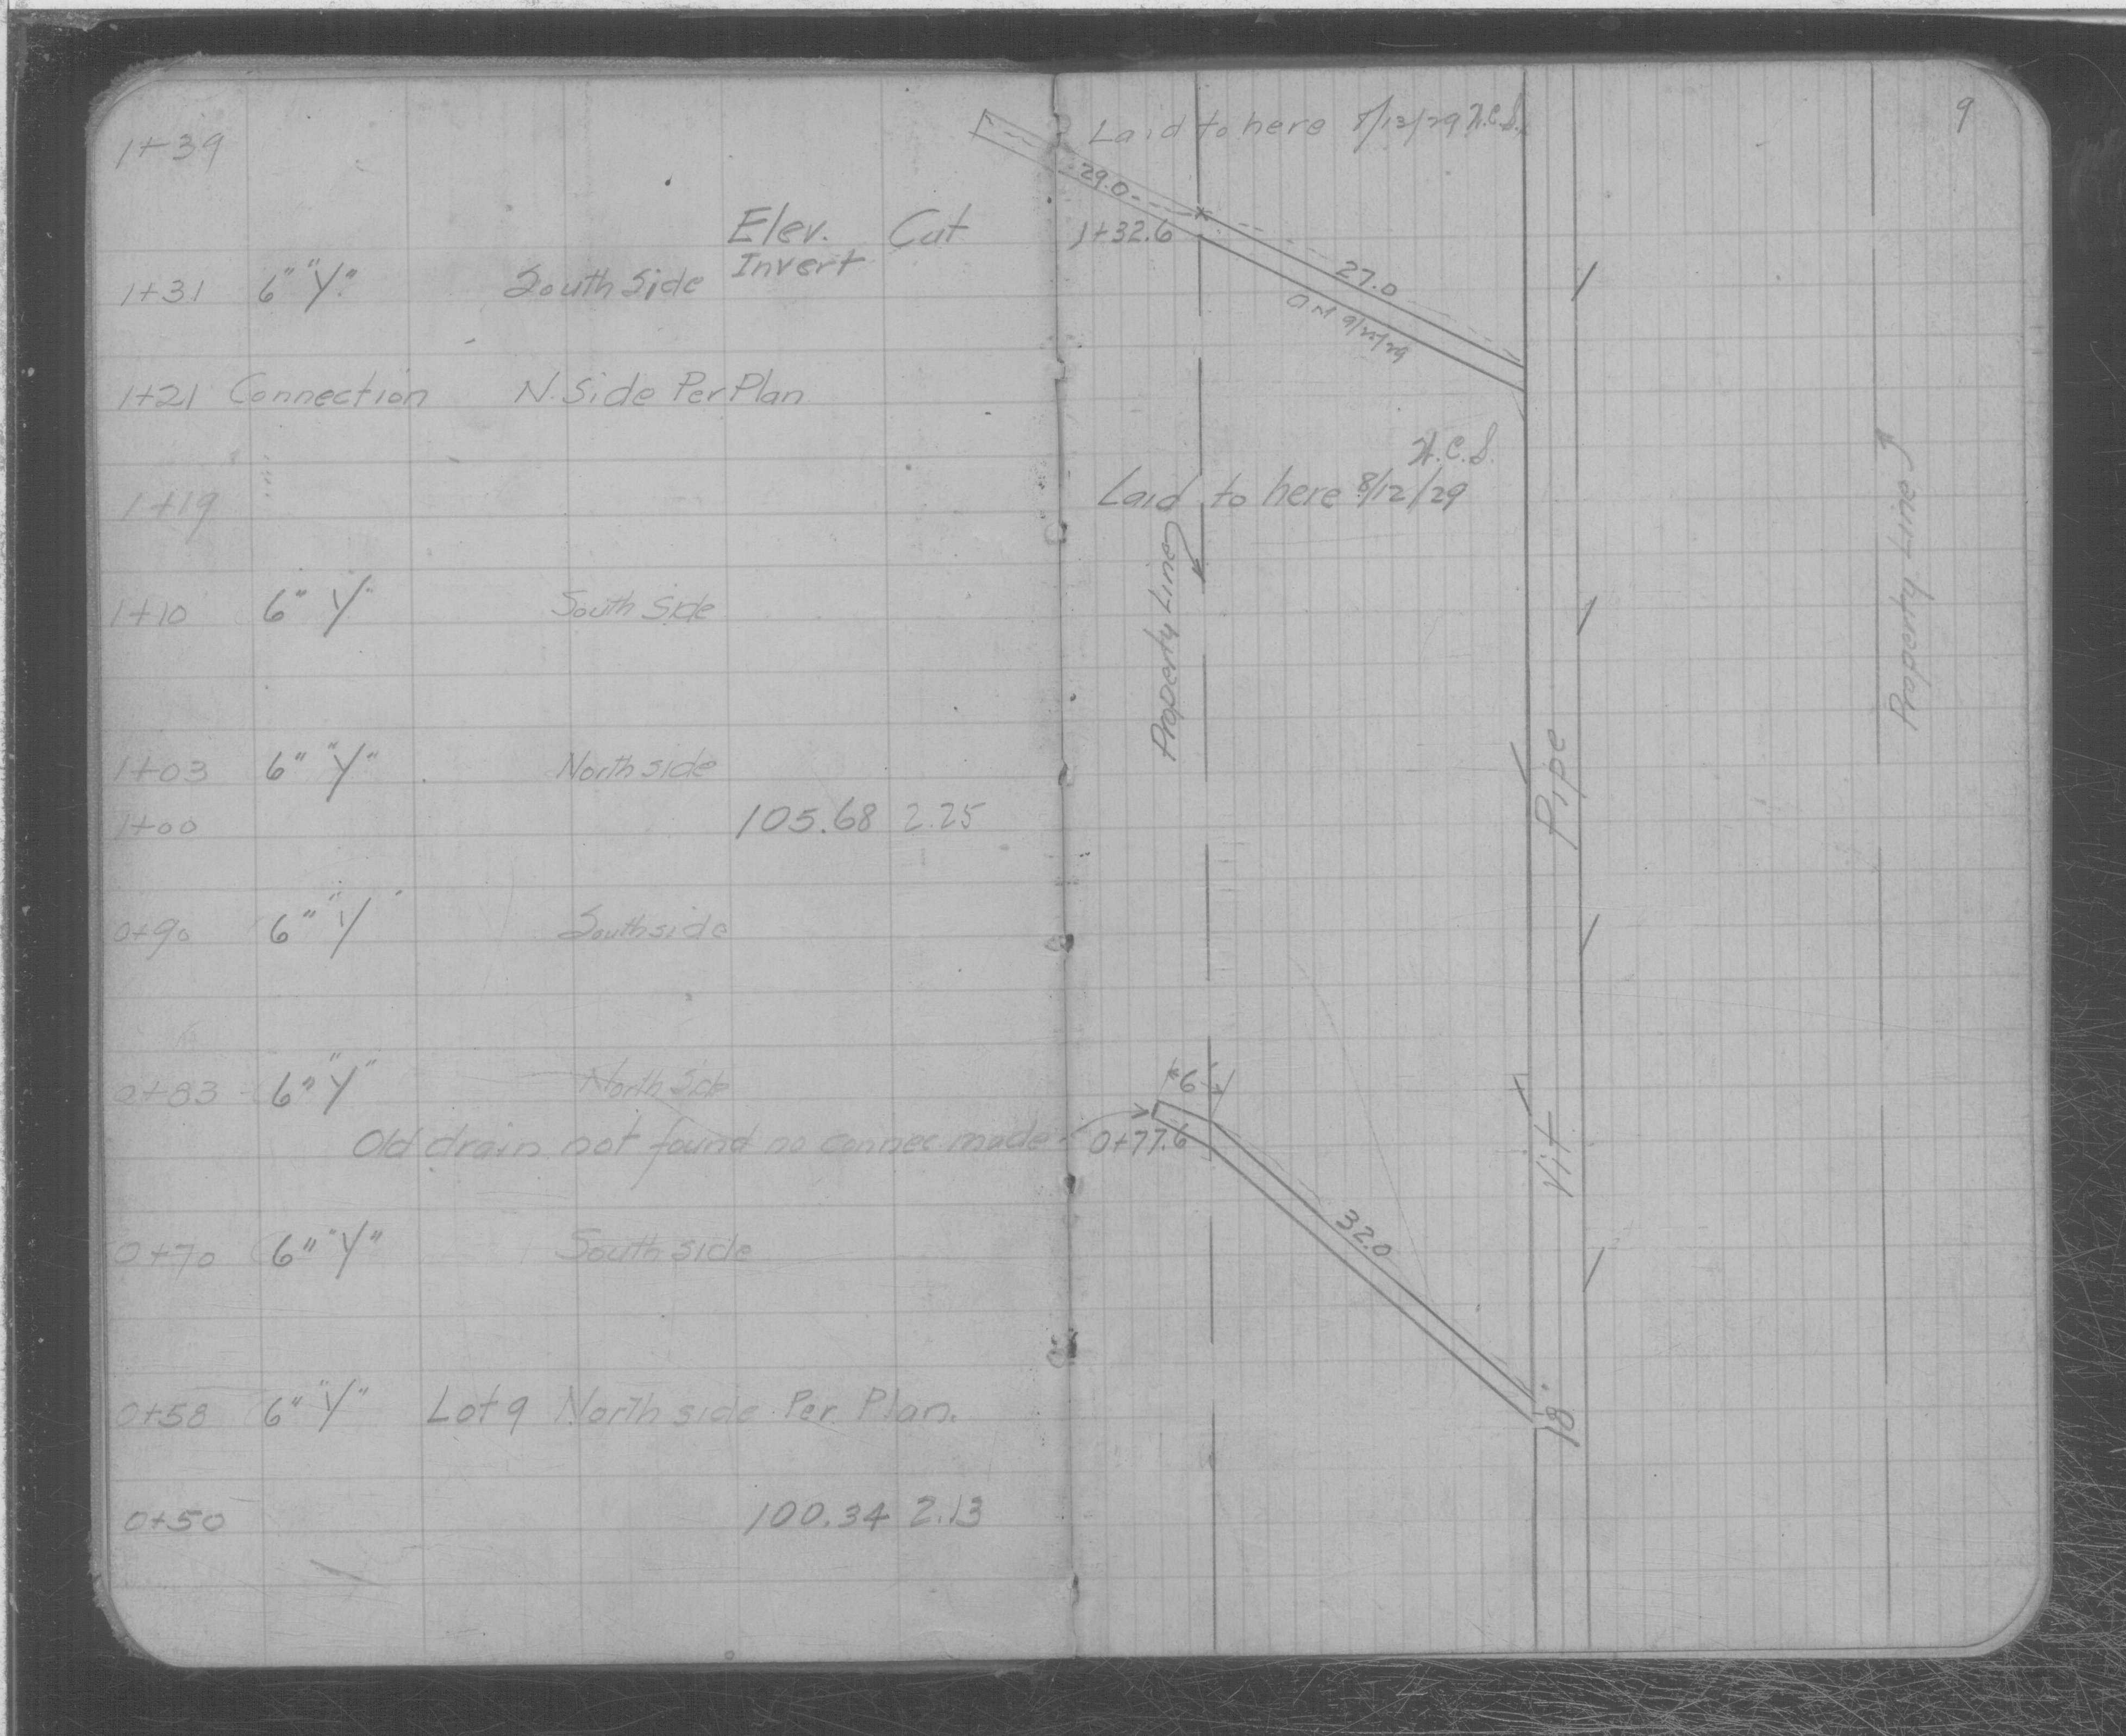 1+39
Elev. Cut
Invert
1+31 6" "Y" South Side
1+21 Connection N. Side Per Plan
1+19
1+10 6" Y" South Side
1+03 6" "Y" North side
1+00 105.68 2.25
0+90 6" "Y" South side
0+83 6" "Y" North Side
Old drain not found no connec made
0+70 6" "Y" South side
0+58 6" "Y" Lot 9 North side Per Plan.
0+50 100.34 2.13
9
Laid to here 8/13/29 H.C.S.
29.0
1+32.6
27.0
H.C.S.
Laid to here 8/12/29
Property Line
Property Line
6
0+77.6
32.0
18" Vit Pipe